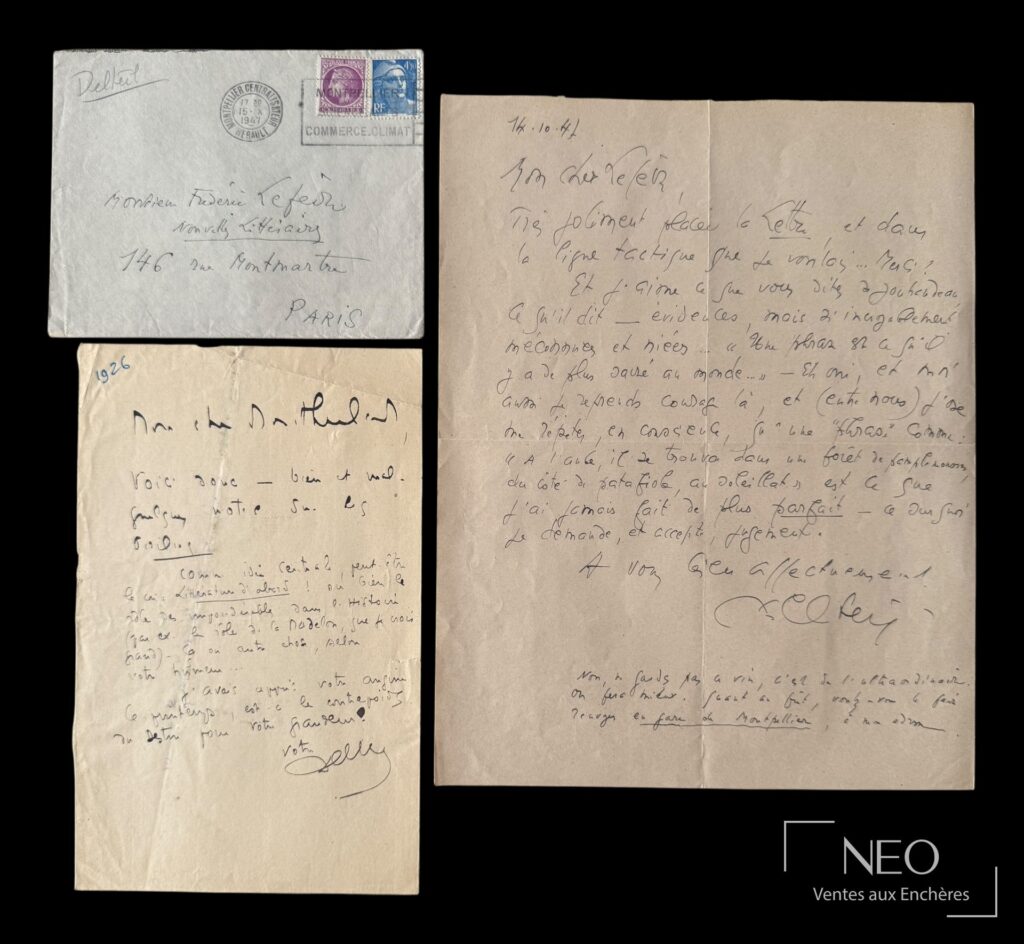 Delteil
MONTPELLIER CENTRALISATEUR
15-X
1947
HERAULT
MONTPELLIER
COMMERCE.CLIMAT
RF
Monsieur Frédéric Lefèvre
Nouvelles Littéraires
146 rue Montmartre
PARIS
1926
Mon cher Montherlant,
Voici donc — bien et mal —
quelques notes sur les
Poilus.
Comme idée centrale, peut-être
le cri: Littérature d'abord! ou bien le
rôle des impondérables dans l'Histoire
(par ex. le rôle de la Madelon, que je crois
grand) — Ça ou autre chose, selon
votre humeur...
J'avais appris votre angine
ce printemps, est-ce le contrepoids
du destin pour votre grandeur?
votre
14.10.47
Mon cher Lefèvre,
Très joliment placée la Lettre, et dans
la ligne tactique que je voulais... Merci!
Et j'aime ce que vous dites de Jouhandeau
ce qu'il dit — évidences, mais si incroyablement
méconnues et niées... « Une phrase est ce qu'il
y a de plus sacré au monde... » — Eh oui, et moi
aussi je reprends courage là, et (entre nous) j'ose
me répéter, en conscience, qu'une "phrase" comme:
« A l'aube, il se trouva dans une forêt de pamplemousses,
du côté de patafiole, au soleillat » est ce que
j'ai jamais fait de plus parfait — ce sur quoi
je demande, et accepte, jugement.
A vous bien affectueusement
Delteil
Non, ne gardez pas ce vin, c'est de l'ultraordinaire.
On fera mieux. Quant au fût, voulez-vous le faire
renvoyer en gare de Montpellier, à mon adresse
NEO
Ventes aux Enchères